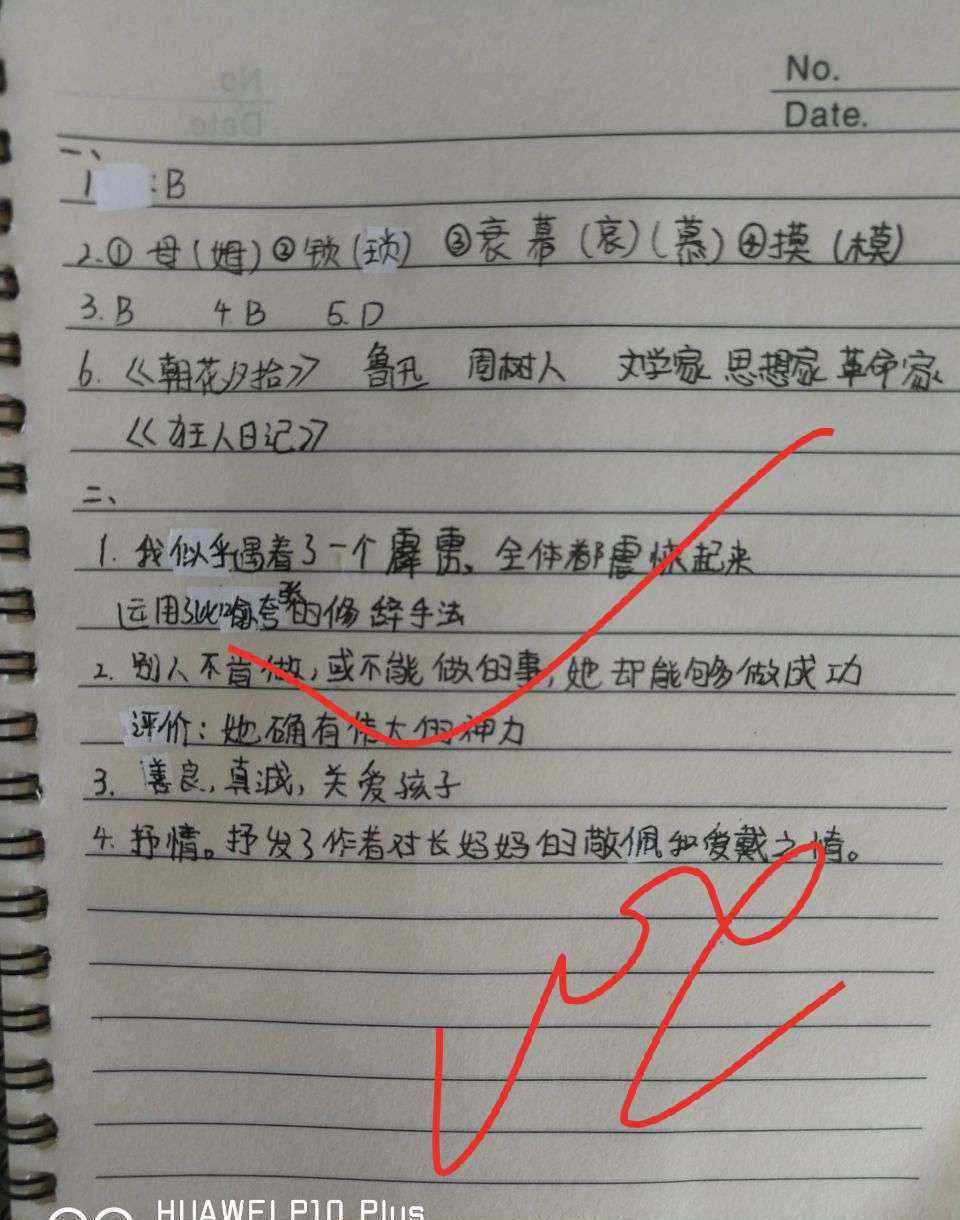 No.
Date.
一、
1 :B
2.① 母(姆) ②锁(琐) ③衰 幕(哀)(慕) ④摸(模)
3.B 4.B 5.D
6.《朝花夕拾》 鲁迅 周树人 文学家 思想家 革命家
《狂人日记》
二、
1. 我似乎遇着了一个霹雳、全体都震悚起来
运用了 夸张的修辞手法
2. 别人不肯做,或不能做的事,她却能够做成功
评价:她确有伟大的神力
3. 善良,真诚,关爱孩子
4. 抒情。抒发了作者对长妈妈的敬佩和爱戴之情。
HUAWEI P10 Plus